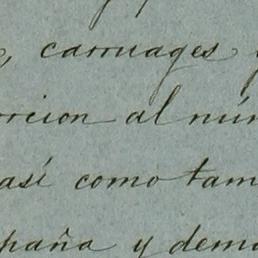 , carruages
orcion al núm
así como tam
spaña y dema